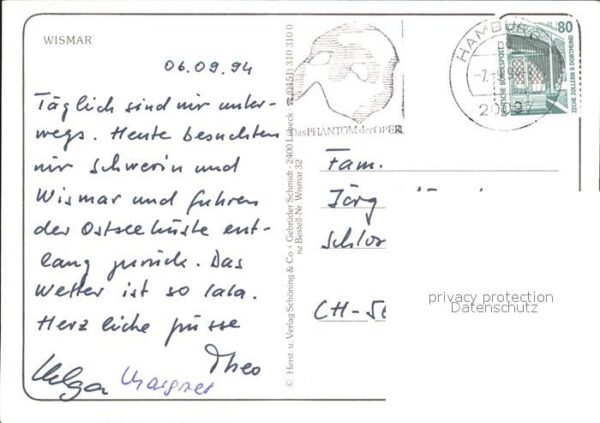 WISMAR
06.09.94
Täglich sind wir unter-
wegs. Heute besuchten
wir Schwerin und
Wismar und fuhren
der Ostseeküste ent-
lang zurück. Das
Wetter ist so lala.
Herzliche Grüsse
Theo
Helga Margret
© Herst. u. Verlag Schöning & Co + Gebrüder Schmidt · 2400 Lübeck · ☎ (0451) 310 310 0
nz Bestell-Nr. Wismar 32
Das PHANTOM der OPER
HAMBURG
20097
80
DEUTSCHE BUNDESPOST
ZECHE ZOLLERN II DORTMUND
Fam.
Jörg
CH-56
privacy protection
Datenschutz